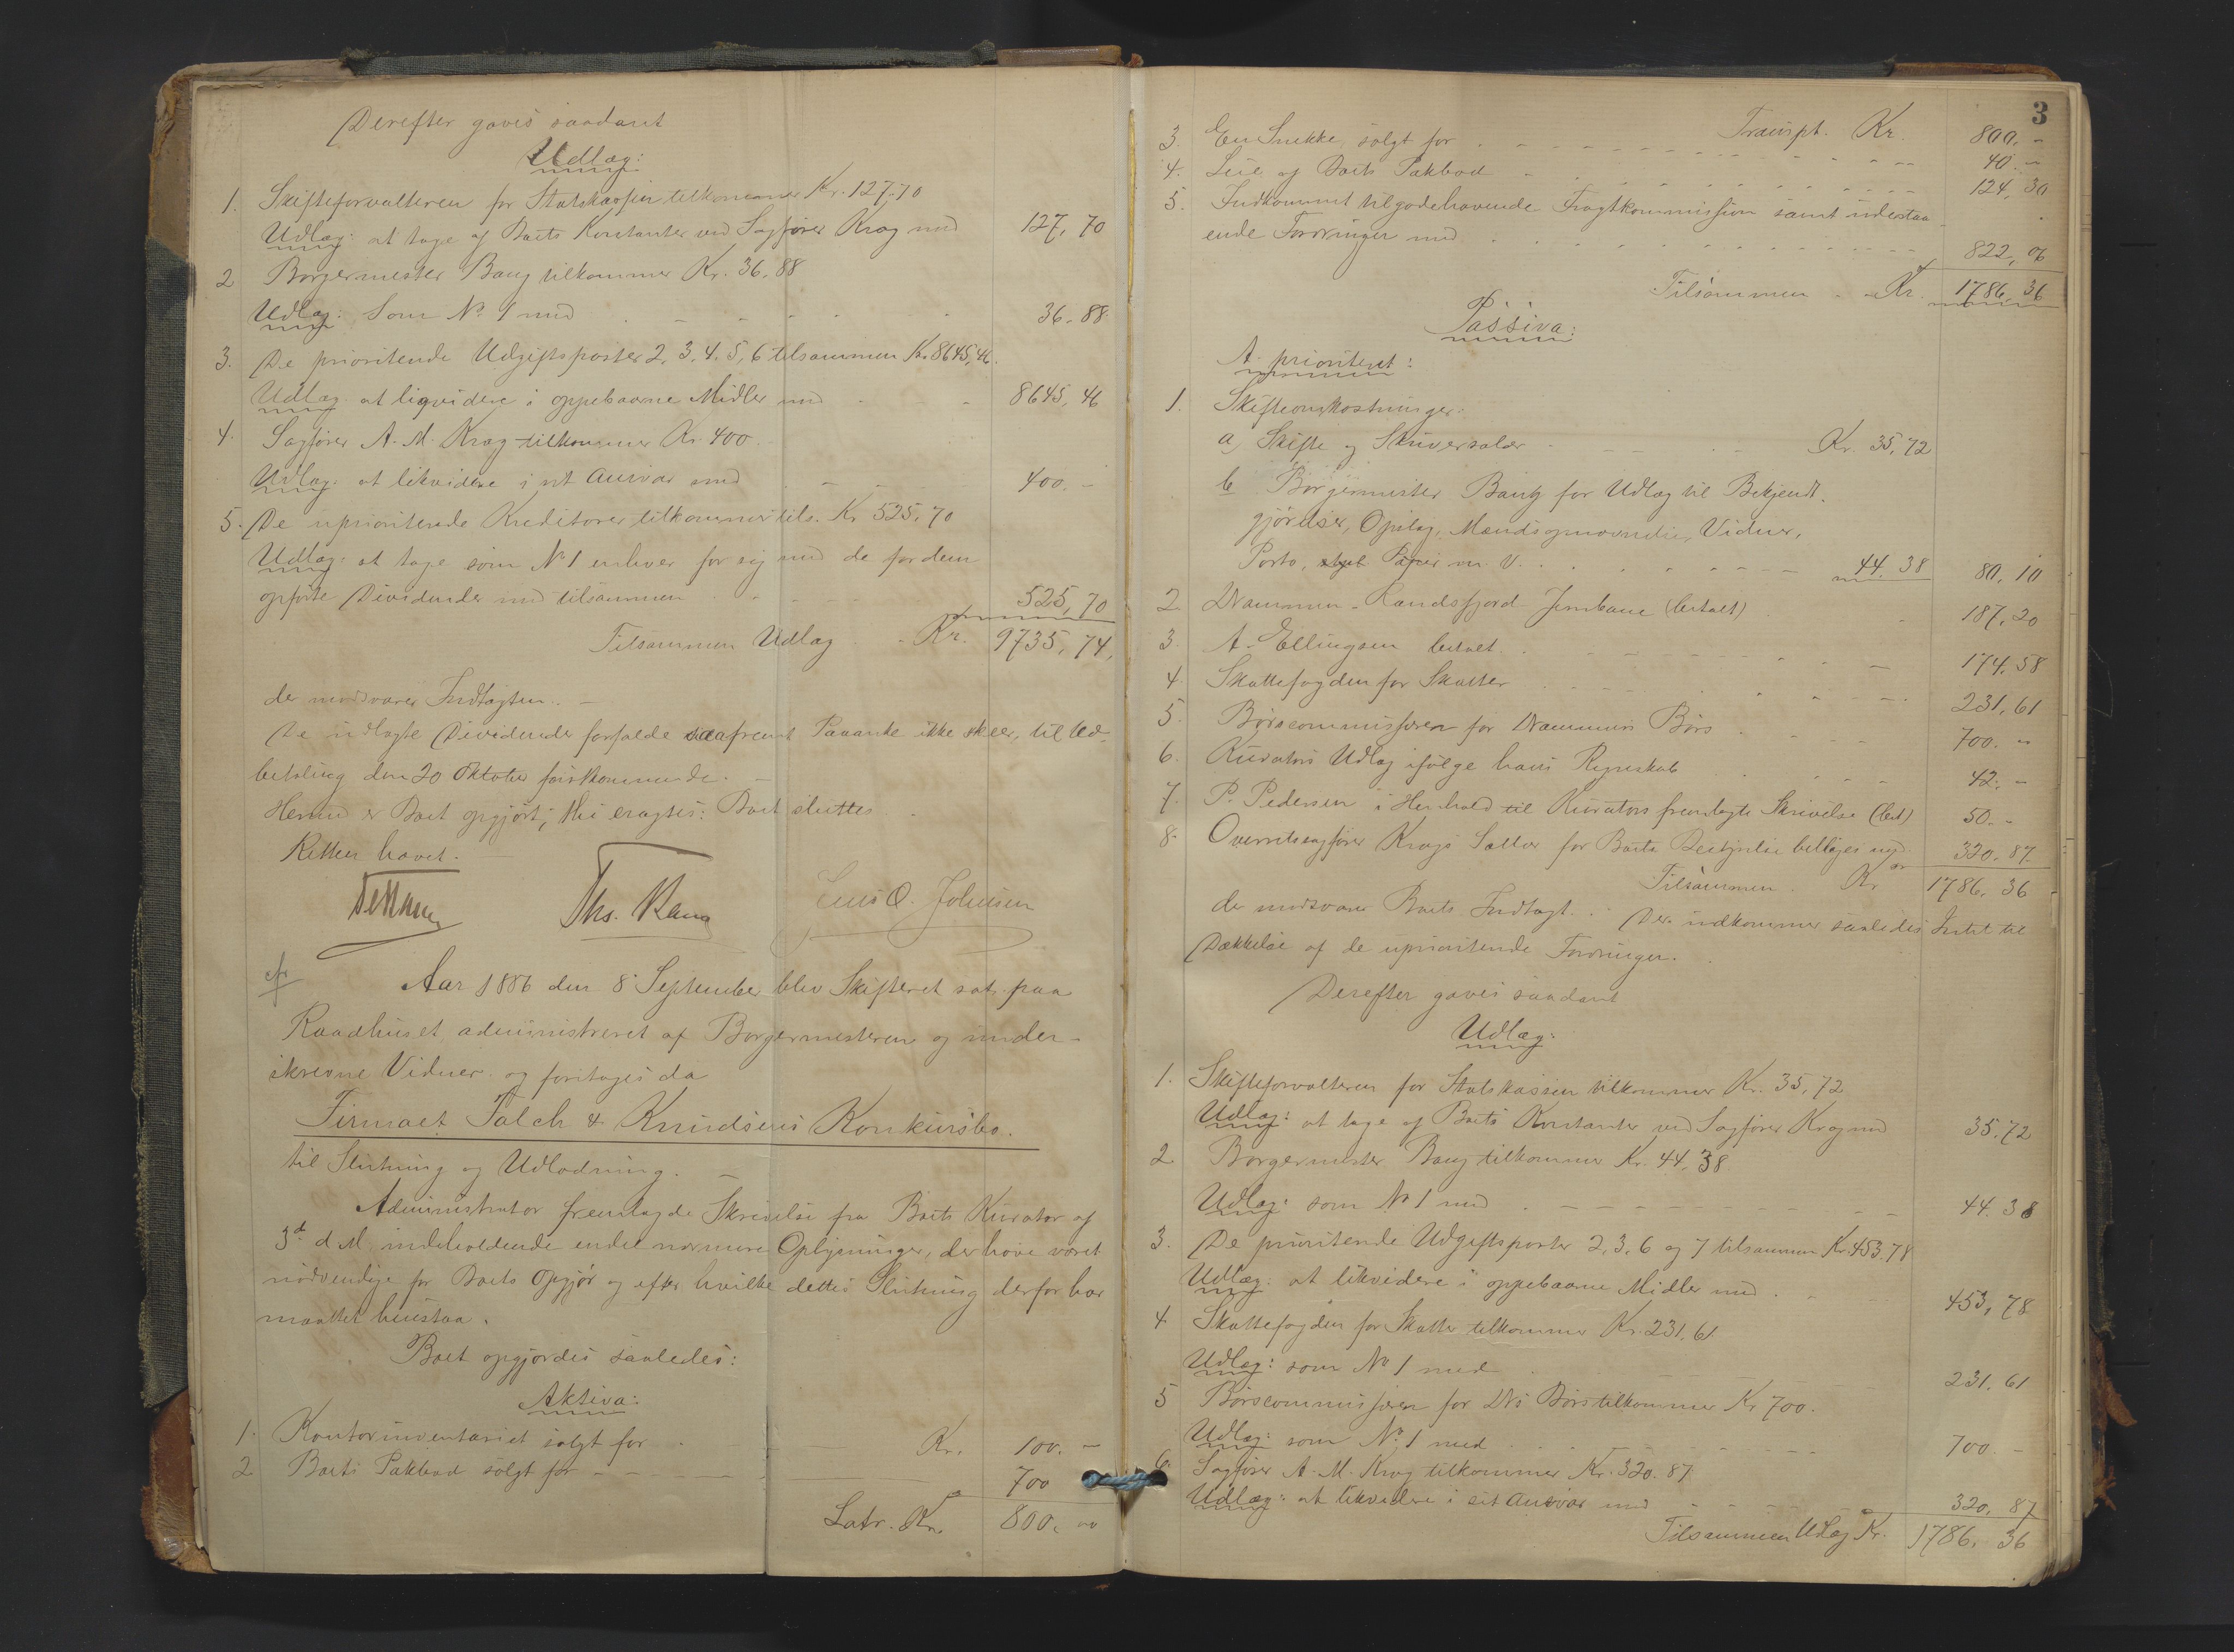 Derefter gaves saadant
Udlæg:
1. Skifteforvalteren for Statskassen tilkommer Kr. 127,70
Udlæg: at tage af Boets Kontanter ved Sagfører Krag med 127,70
2 Borgermester Bang tilkommer Kr. 36,88
Udlæg: Som No 1 med 36.88
3. De prioriterede Udgiftsposter 2, 3, 4, 5, 6 tilsammen Kr 8645,46.
Udlæg: at liqvidere i oppebaarne Midler med 8645,46
4. Sagfører A. M. Krag tilkommer Kr. 400
Udlæg: at likvidere i sit Ansvar med 400. -
5. De uprioriterede Kreditorer tilkommer tils. Kr 525,70
Udlæg: at tage som No 1 enhver for sig med de for dem
opførte Dividender med tilsammen 525,70
Tilsammen Udlæg Kr. 9735,74,
der modsvarer Indtægten. -
De udlagte Dividender forfalde saafremt Paaanke ikke skeer, til Ud-
betaling den 20 Oktober førstkommende. -
Hermed er Boet opgjort, thi eragtes: Boet sluttes.
Retten hævet. -
Ths. Bang
Jens O. Johnsen
Aar 1886 den 8 September blev Skifteret sat paa
Raadhuset administreret af Borgermesteren og under-
skrevne Vidner og foretages da
Firmaet Falch & Knudsens Konkursbo.
til Slutning og Udlodning. -
Administrator fremlagde Skrivelse fra Boets Kurator af
3d d. M. indeholdende endel nærmere Oplysninger, der have været
nødvendige for Boets Opgjør og efter hvilke dettes Slutning derfor har
maattet henstaa.
Boet opgjordes saaledes:
Aktiva:
1. Kontorinventariet solgt for Kr. 100. -
2 Boets Pakbod solgt for 700
Latr. Kr. 800. "
3
Transpt. Kr. 800. -
3. En Snekke, solgt for 40. -
4. Leie af Boets Pakbod 124,30
5. Indkommet tilgodehavende Fragtkommission samt udestaa-
ende Fordringer med 822,06
Tilsammen Kr. 1786,36
Passiva:
A. prioriteret:
1. Skifteomkostninger:
a, Skifte og Skriversalær Kr. 35,72
b Borgermester Bang for Udlæg til Bekjendt-
gjørelser, Opslag, Mændsopnævnelse, Vidner,
Porto, stpl. Papir m. V. 44,38 80,10
2. Drammen-Randsfjord Jernbane (betalt) 187,20
3. A. Ellingsen betalt 174,58
4. Skattefogden for Skatter 231,61
5. Børscommissæren for Drammens Børs 700. "
6. Kurators Udlæg ifølge hans Regnskab 42. -
7. P. Pedersen i Henhold til Kurators fremlagte Skrivelse (bet) 50. -
8. Overretssagfører Krags Salær for Boets Bestyrelse billiges med 320,87
Tilsammen. Kr 1786,36
der modsvarer Boets Indtægt. Der udkommer saaledes Intet til
Dækkelse af de uprioriterede Fordringer.
Derefter gaves saadant
Udlæg:
1. Skifteforvalteren for Statskassen tilkommer Kr. 35,72
Udlæg: at tage af Boets Kontanter ved Sagfører Krag med 35,72
2. Borgermester Bang tilkommer Kr. 44,38
Udlæg: som No 1 med 44.38
3. De prioriterede Udgiftsposter 2, 3, 6 og 7 tilsammen Kr. 453.78
Udlæg: at likvidere i oppebaarne Midler med 453,78
4. Skattefogden for Skatter tilkommer Kr. 231.61
Udlæg: som No 1 med 231.61
5 Børscommissæren for Drs Børs tilkommer Kr 700.
Udlæg: som No 1 med 700. -
6. Sagfører A. M. Krag tilkommer Kr. 320.87
Udlæg: at likvidere i sit Ansvar med 320,87
Tilsammen Udlæg Kr. 1786.36